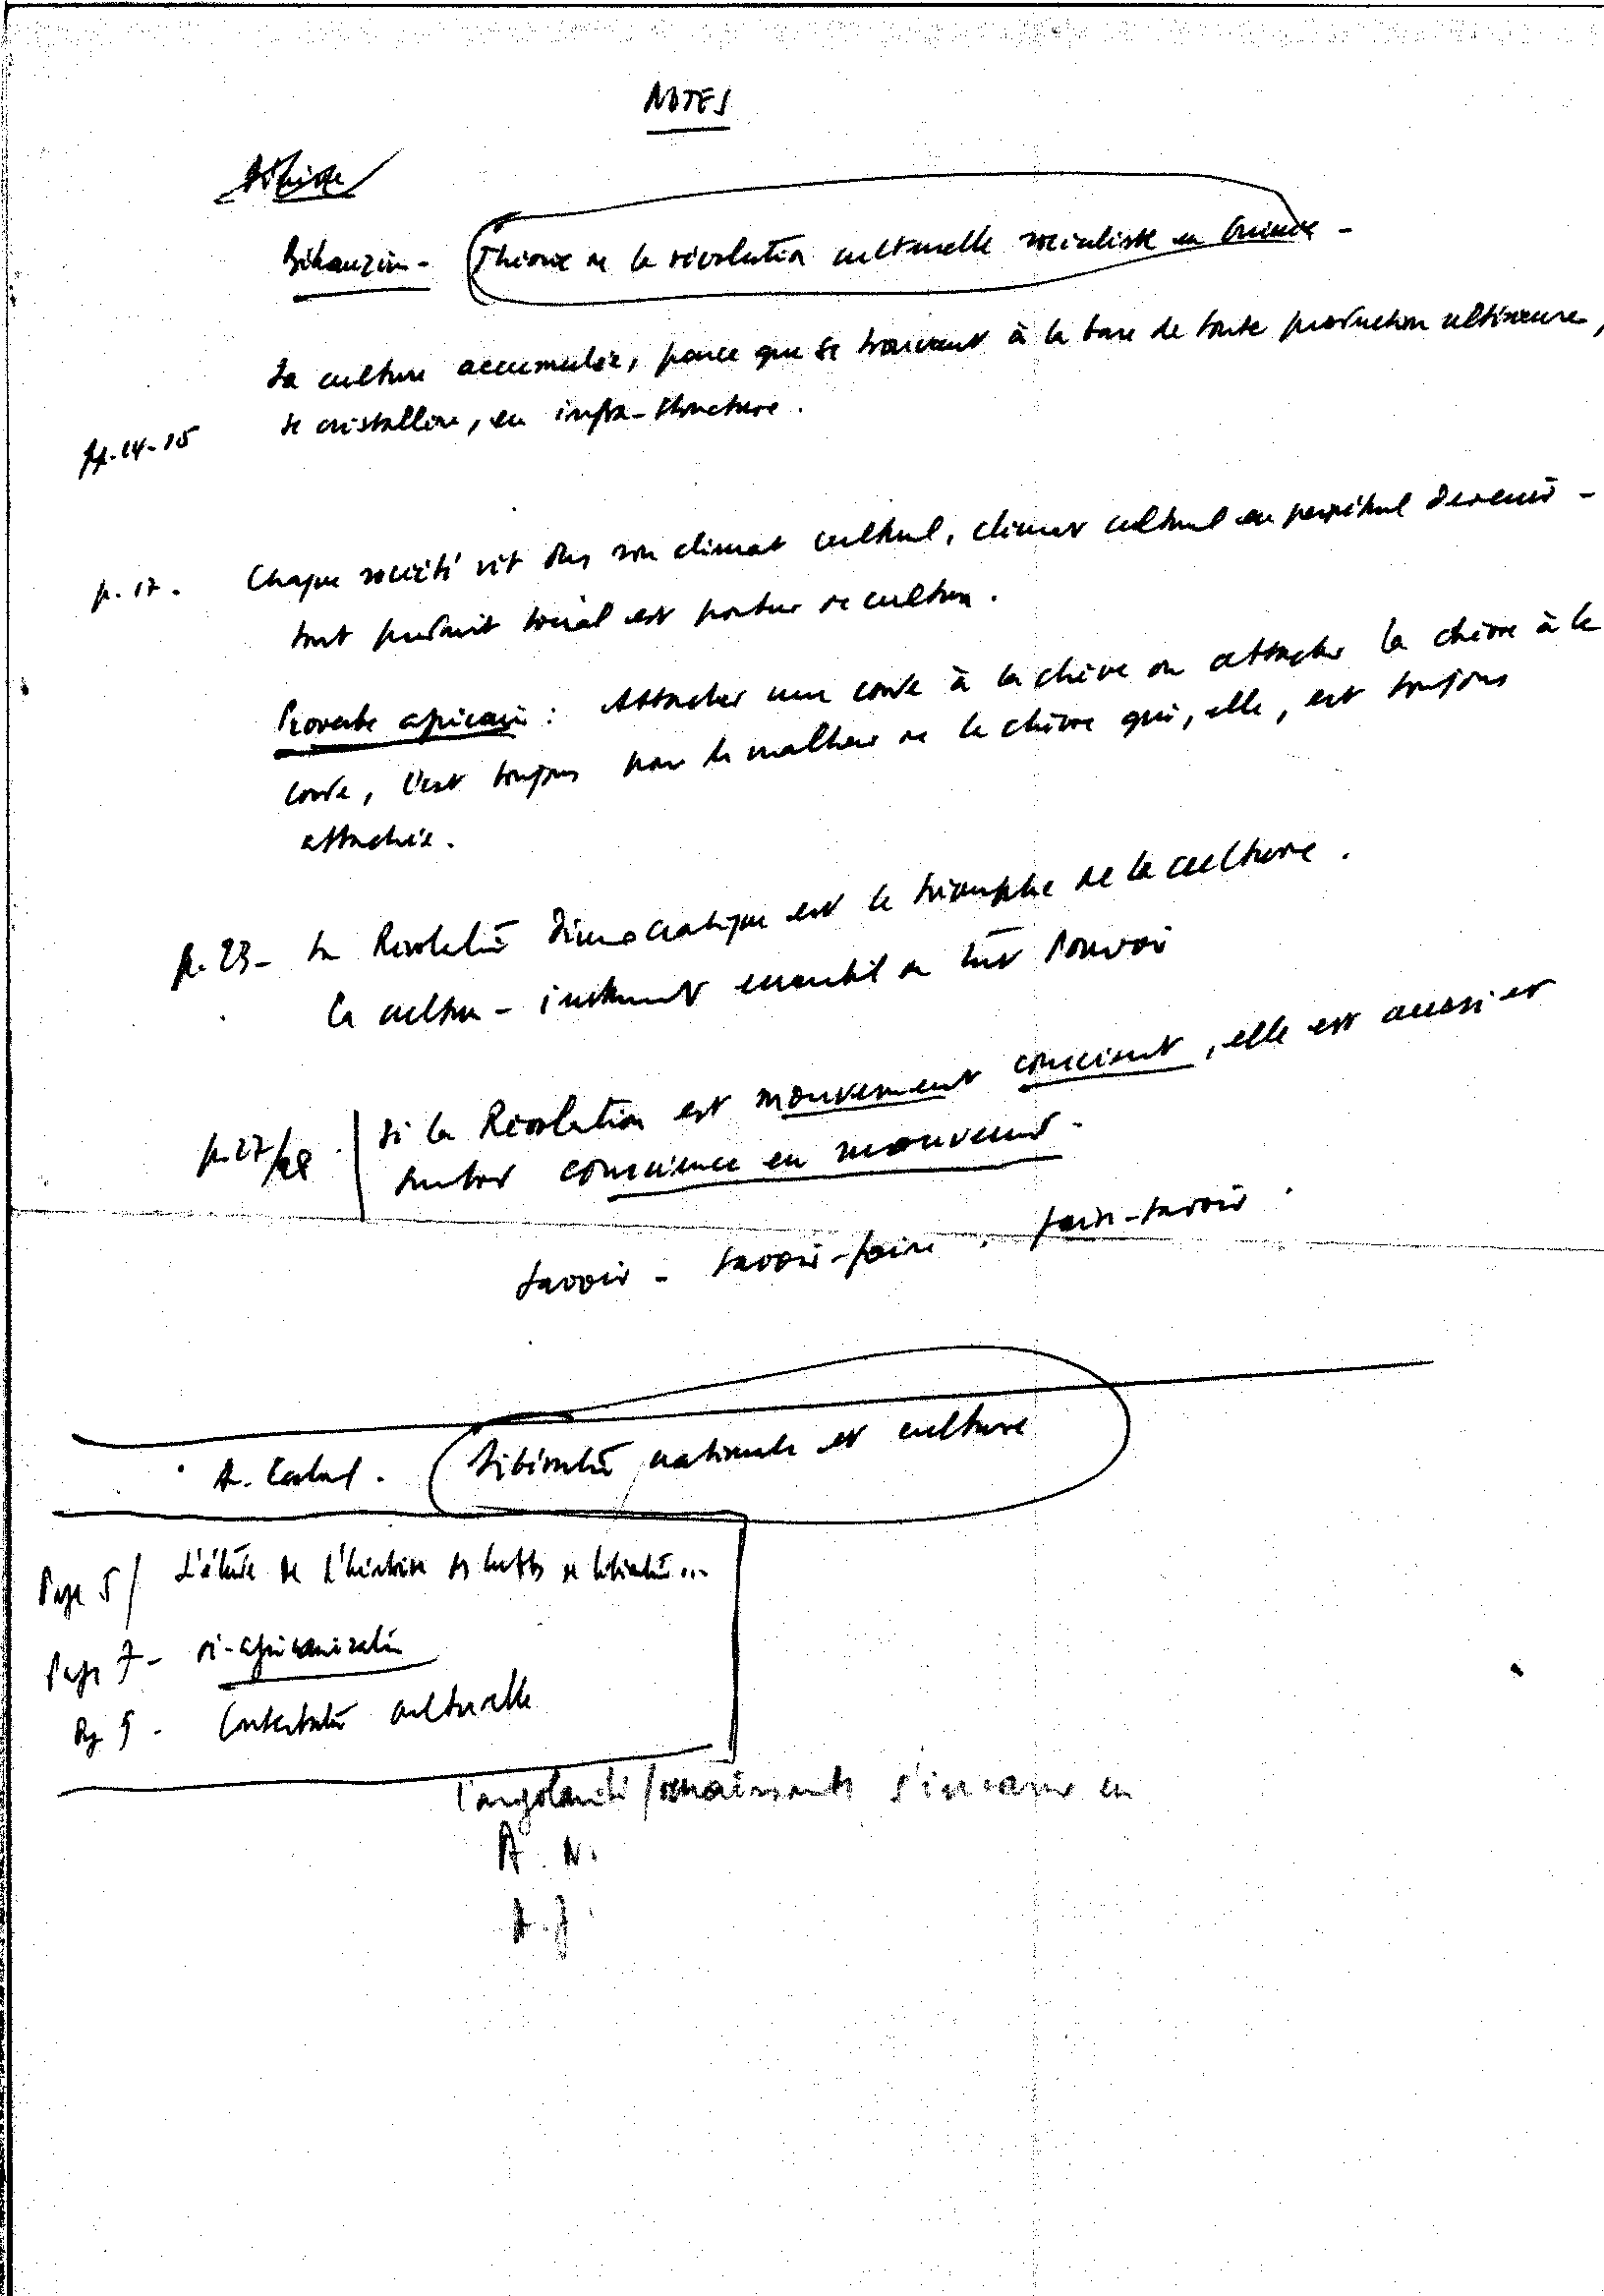 NOTES
Béhanzin - Théorie de la révolution culturelle socialiste en Guinée -
La culture accumulée, parce que se trouvant à la base de toute production ultérieure,
pp. 14-15 se cristallise, en infra-structure.
p. 17. Chaque société vit dans son climat culturel, climat culturel en perpétuel devenir -
tout produit social est porteur de culture.
Proverbe africain : Attacher une corde à la chèvre ou attacher la chèvre à la
corde, c'est toujours pour le malheur de la chèvre qui, elle, est toujours
attachée.
p. 23 - La Révolution Démocratique est le triomphe de la culture.
La culture - instrument essentiel de tout Pouvoir
p. 27/28. Si la Révolution est mouvement conscient, elle est aussi et
surtout conscience en mouvement.
Savoir - savoir-faire, faire-savoir.
A. Cabral. Libération nationale et culture
Page 5/ L'étude de l'histoire des luttes de libération...
Page 7 - ré-africanisation
Pag 9 - Contestation culturelle
l'angolanité/renaissante s'incarne en
A. N.
A. J.